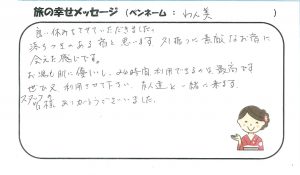 旅の幸せメッセージ（ペンネーム： わん美 ）
良い休みをさせていただきました。
落ちつきのある宿と思います 久し振りに素敵なお宿に
会えた感じです。
お湯も肌に優しいし、24時間利用できるのは最高です
ぜひ又利用させて下さい。友人達と一緒に来ます。
スタッフの
皆様 ありがとうございました。